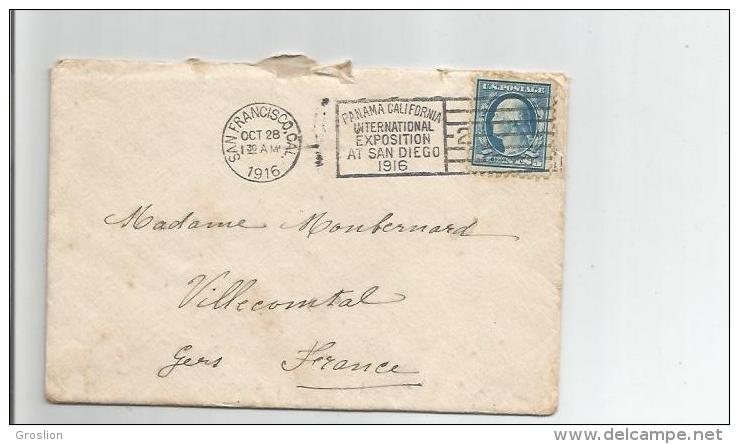 SAN FRANCISCO, CAL.
OCT 28
1 30 AM
1916
PANAMA CALIFORNIA
INTERNATIONAL
EXPOSITION
AT SAN DIEGO
1916
2
U.S. POSTAGE
Madame Monbernard
Villecomtal
Gers France
Groslion
delcampe.net